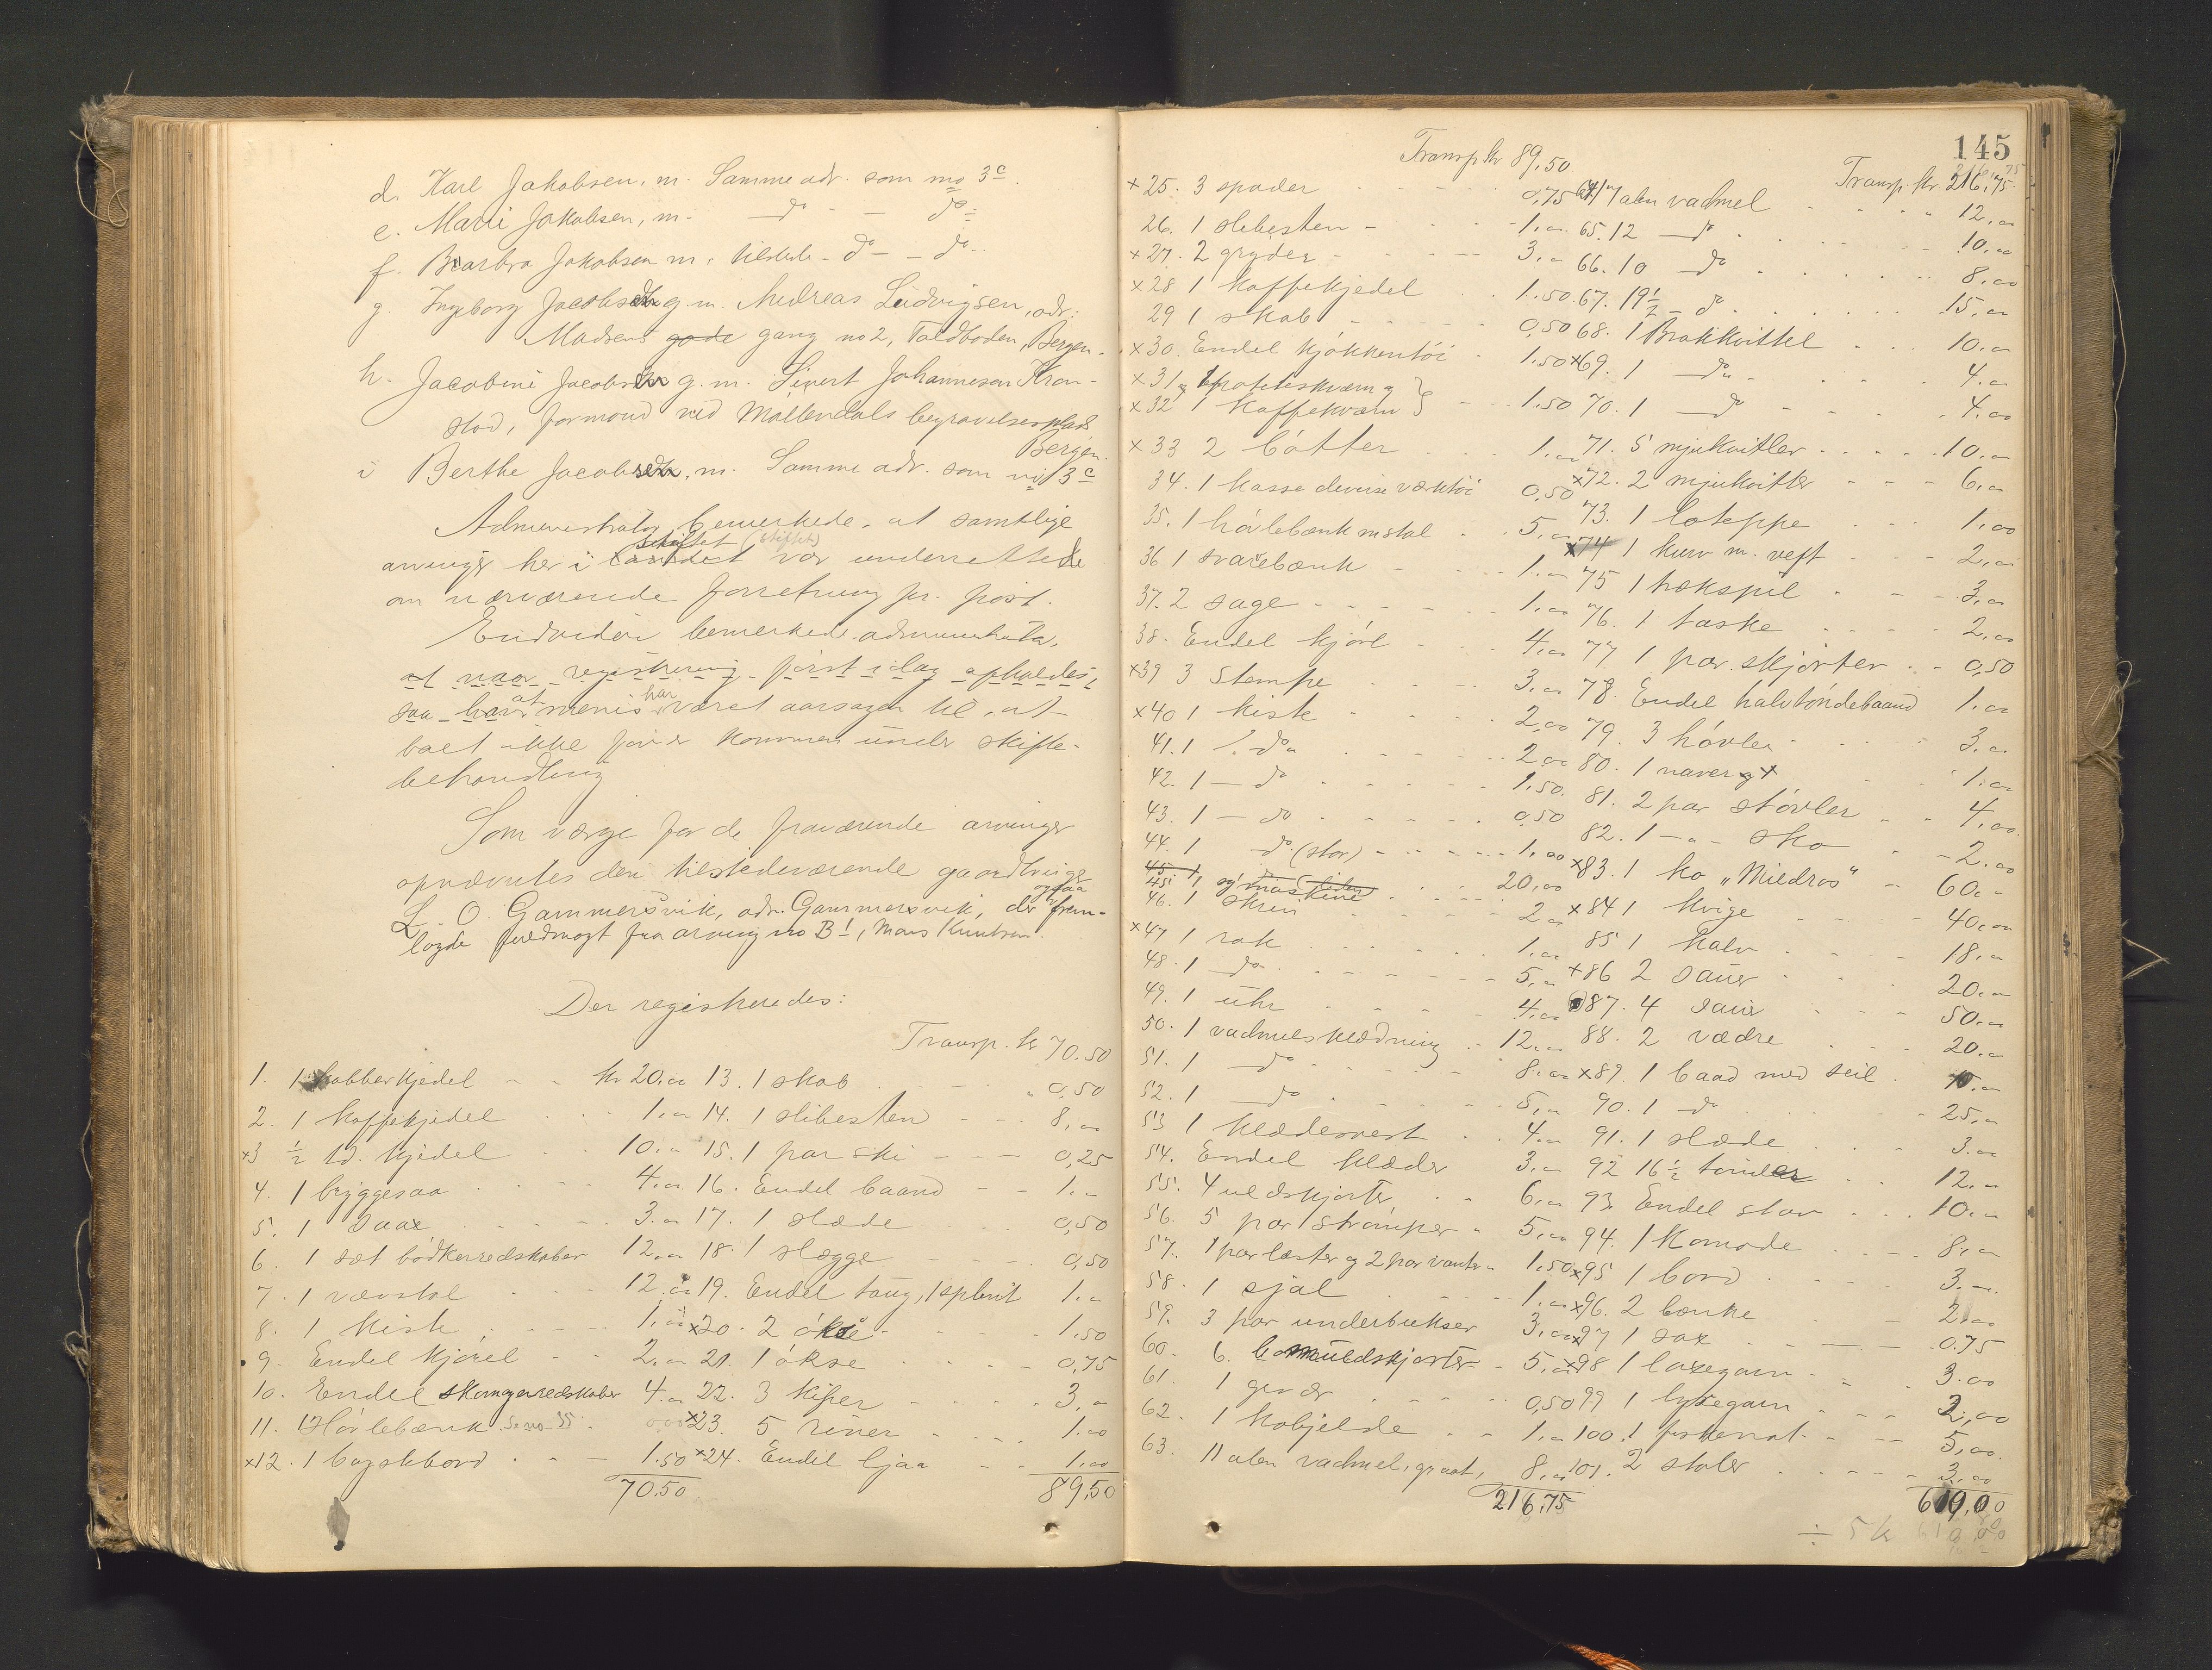 d. Karl Jakobsen, m. Samme adr. som no 3c.
e. Marie Jakobsen, m. — do — do
f. Barbra Jakobsen m. tilstede — do — do
g. Ingeborg Jacobsen g. m. Andreas Ludvigsen, adr:
Madsens gade gang no 2, Toldboden, Bergen.
h. Jacobine Jacobsen g. m. Sivert Johannesen Kron-
stad, formand ved Möllendals begravelsesplads
Bergen.
i Berthe Jacobsen, m. Samme adr. som no 3c
Administrator bemerkede, at samtlige
skiftet (stiftet)
arvinger her i var underrettede
om nærværende forretning pr. post.
Endvidere bemerkede administrator,
at naar registrering först idag afholdes,
saa menes at har været aarsagen til, at
boet ikke för er kommen under skifte-
behandling
Som værge for de fraværende arvinger
opnævntes den tilstedeværende gaardbruger
L. O. Gammersvik, adr. Gammersvik, der ogsaa frem-
lagde fuldmagt fra arving no B1, Mons Knutsen.
Der registreredes:
1. 1 kobberkjedel - - kr 20.00
2. 1 kaffekjedel 1.00
x3 ½ td. kjedel 10.00
4. 1 bryggesaa 4.00
5. 1 saae 3.00
6. 1 sæt bödkerredskaber 12.00
7. 1 vævstol 12.00
8. 1 kiste 1.00
9. Endel kjörel 2.00
10. Endel skomagerredskaber 4.00
11. 1 Hövlebænk. Se no 35
x12. 1 bagstebord 1.50
70.50
Transp. kr 70.50
13. 1 skab 0,50
14. 1 slibesten 8,00
15. 1 par ski 0,25
16. Endel baand 1.-
17. 1 slæde 0,50
18. 1 slægge 0,50
19. Endel taug, 1 splitt 1.00
x20. 2 ökse 1.50
21. 1 ökse 0,75
22. 3 kiper 3,00
x23. 5 river 1.00
x24. Endel ljaa 1.00
89,50
145
Transp kr 89,50
x25. 3 spader 0,75
26. 1 slibesten 1.00
x27. 2 gryder 3,00
x28 1 kaffekjedel 1.50
29 1 skab 0,50
x30. Endel kjökkentöi 1.50
x31 1 og
x32 1 kaffekværn } 1.50
x33 2 bötter 1.00
34. 1 kasse diverse værktöi 0,50
35. 1 hövlebænk m stol 5,00
36 1 svarebænk 1.00
37. 2 sage 1.00
38. Endel kjörl 4.00
x39 3 Stampe 3.00
x40 1 kiste 2,00
41. 1 — do 2,00
42. 1 — do 1.50
43. 1 — do 0,50
44. 1 do (stor) 1.00
45. 1 symaskine 20,00
46. 1 skrin 2,00
x47 1 rok 1.00
48. 1 do 5,00
49. 1 uhr 4.00
50. 1 vadmelsklædning 12.00
51. 1 do 8.00
52. 1 do 5,00
53 1 klædesvest 4.00
54. Endel klæder 3.00
55. 4 uldskjorter 6.00
56. 5 par strömper 5.00
57. 1 par læster og 2 par vanter 1.50
58. 1 sjal 1.00
59. 3 par underbukser 3.00
60. 6 bomuldskjorter 5.00
61. 1 gevær 0,50
62. 1 kobjelde 1.00
63. 11 alen vadmel, graat, 8.00
216,75
Transp. kr. 216,75
64. 17 alen vadmel 12.00
65. 12 — do 10.00
66. 10 — do 8,00
67. 19½ — do 15.00
68. 1 Brakkvittel 10.00
x69. 1 — do 4.00
70. 1 — do 4.00
71. 5 mjukvitler 10.00
x72. 2 mjukvitler 6.00
73. 1 loteppe 1.00
x74 1 kurv m. veft 2.00
75 1 hækspil 3.00
76. 1 taske 2,00
77 1 par skjörter 0,50
78. Endel halvtöndebaand 1.00
79. 3 hövler 3.00
80. 1 naver 1.00
81. 2 par stövler 4,00
82. 1 — " - sko 2.00
x83. 1 ko „Mildros“ 60.-
x84 1 kvige 40,00
85 1 kalv 18.00
x86 2 sauer 20.00
87. 4 sauer 50.00
88. 2 vædre 20.00
x89. 1 baad med seil
90. 1 do 25.00
91. 1 slæde 3.00
92 16½ tönder 12.00
93. Endel stav 10.00
94. 1 Komode 8,00
x95 1 bord 3.-
x96. 2 bænke 2.00
x97 1 sax 0.75
x98 1 laxegarn 3.00
99 1 lysegarn 2,00
100. 1 fiskenot 5,00
101. 2 stoler 3.00
619,00
÷ 5 kr